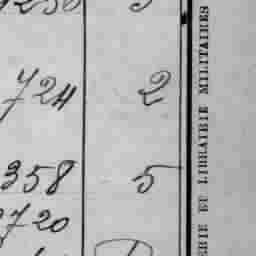 724 2
358 5
720
ERIE ET LIBRAIRIE MILITAIRES